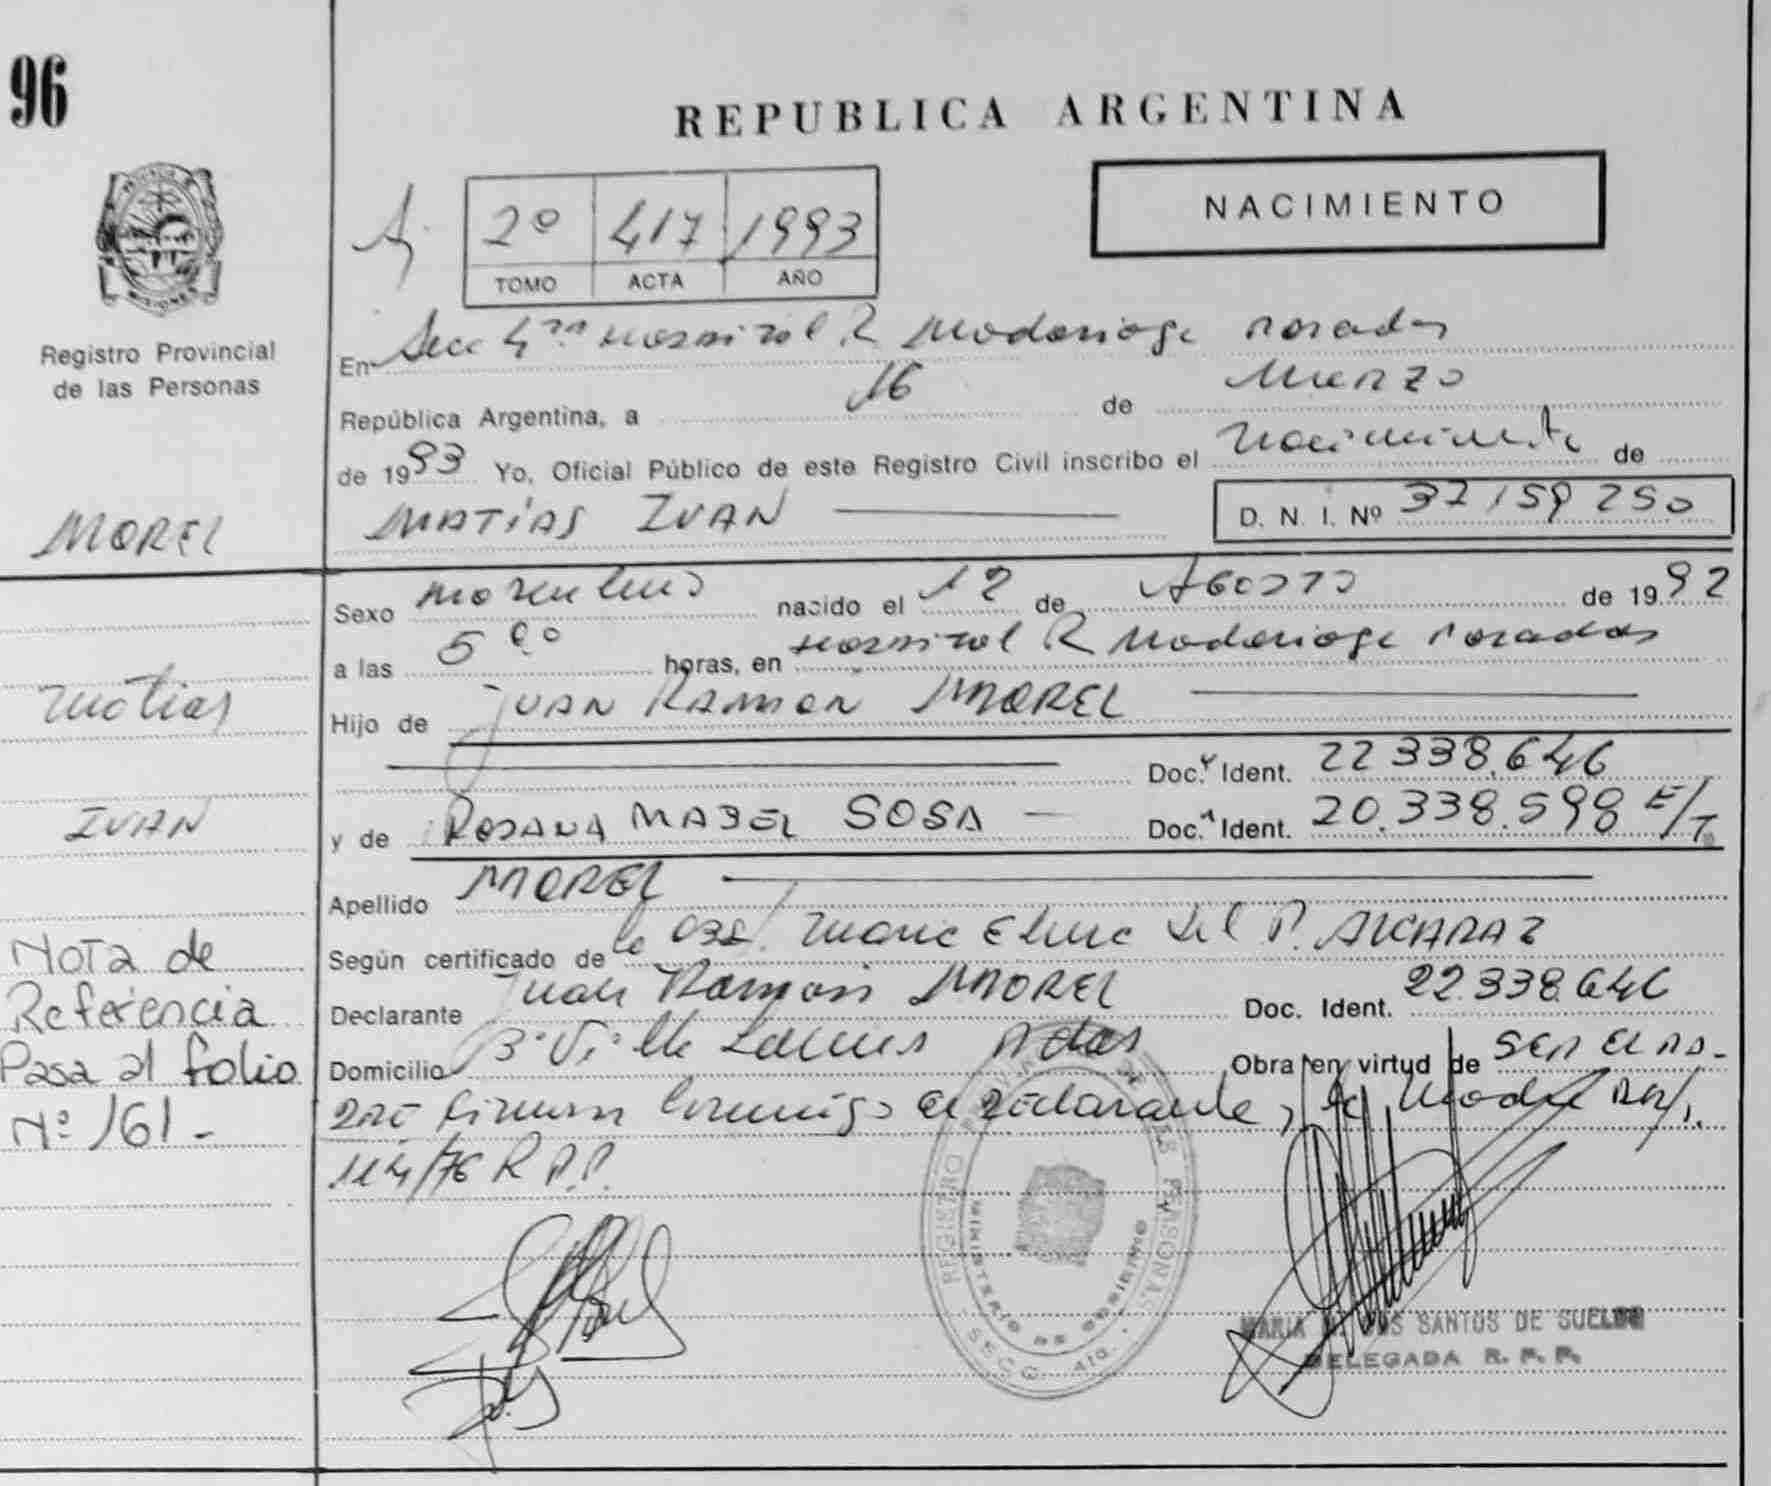 96
REPUBLICA ARGENTINA
NACIMIENTO
2º 417 1993
TOMO ACTA AÑO
Registro Provincial
de las Personas
En Secc 4ta Hospital R Madariaga Posadas
República Argentina, a 16 de Marzo
de 1993 Yo, Oficial Público de este Registro Civil inscribo el Nacimiento de
MATÍAS IVAN
D. N. I. Nº 37 159 250
MOREL
Matías
IVAN
Sexo masculino nacido el 12 de AGOSTO de 1992
a las 5 horas, en Hospital R Madariaga Posadas
Hijo de JUAN RAMON MOREL
Doc. Ident. 22 338.646
y de ROSANA MABEL SOSA Doc. Ident. 20.338.598 E/T.
Apellido MOREL
Según certificado de la Obst. Maria Elena del P. ALCARAZ
Declarante Juan Ramon MOREL Doc. Ident. 22.338.646
Domicilio Bº Va Lanus Pdas Obra en virtud de SER EL PA-
DRE Firman conmigo el declarante, la Madre
114/76 R.P.P.
NOTA de
Referencia
Pasa al folio
Nº 161 -
REGISTRO DE LAS PERSONAS
MINISTERIO DE GOBIERNO
SECC. 4ta.
MARIA DOS SANTOS DE SUELDO
DELEGADA R. P. P.